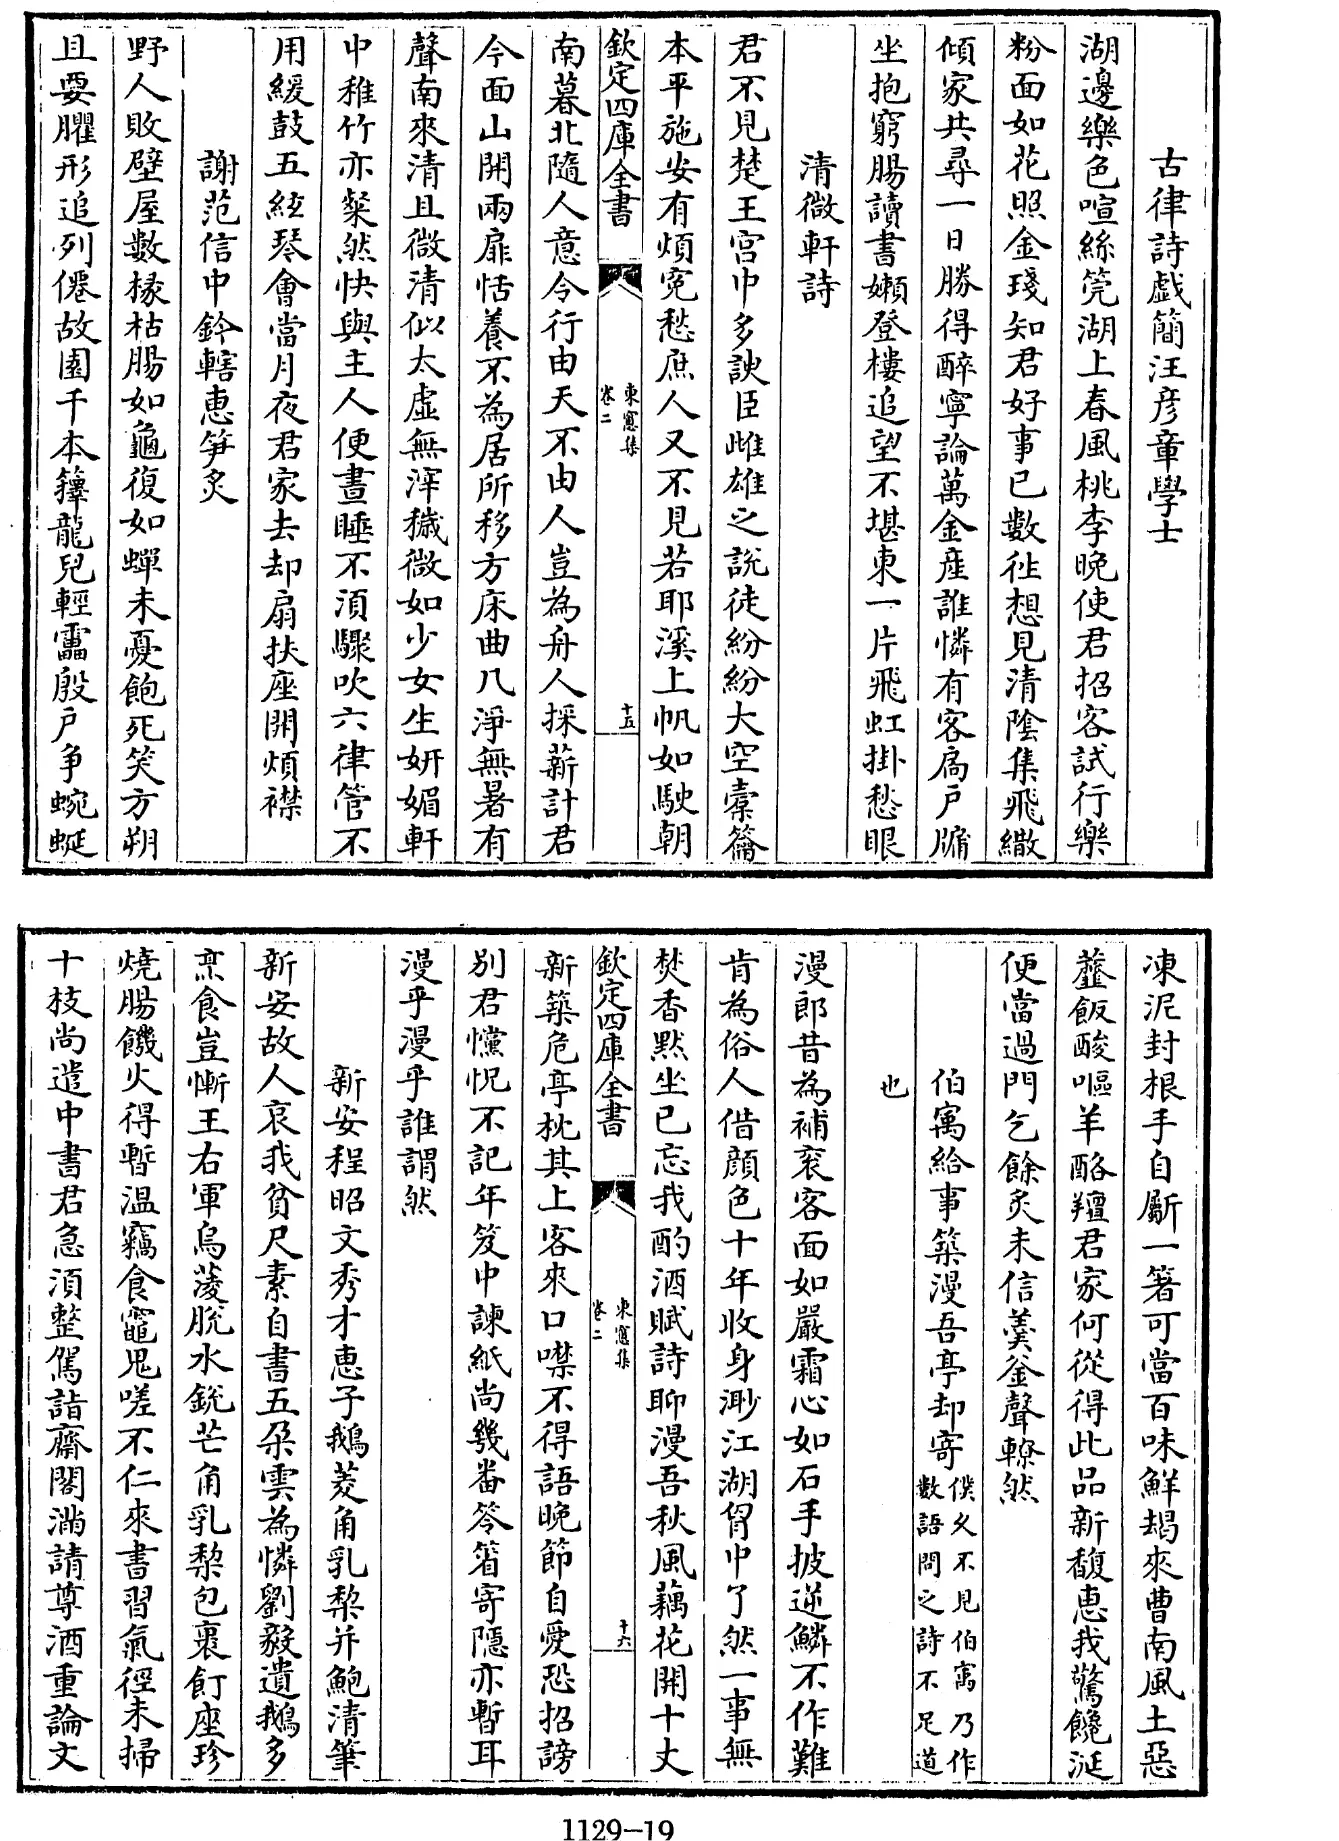 古律詩戲簡汪彥章學士
湖邊樂色喧絲筦湖上春風桃李晚使君招客試行樂
粉面如花照金琖知君好事已數徃想見清陰集飛繖
傾家共尋一日勝得醉寧論萬金産誰憐有客扄戸牖
坐抱窮腸讀書嬾登樓追望不堪東一片飛虹掛愁眼
清微軒詩
君不見楚王宫中多諛臣雌雄之説徒紛紛大空橐籥
本平施安有煩寃愁庶人又不見若耶溪上帆如駛朝
欽定四庫全書
東窻集
卷二
十五
南暮北隨人意令行由天不由人豈為舟人採薪計君
今面山開兩扉恬養不為居所移方床曲几淨無暑有
聲南來清且微清似太虛無滓穢微如少女生妍媚軒
中稚竹亦粲然快與主人便晝睡不湏驟吹六律管不
用緩鼓五絃琴會當月夜君家去却扇扶座開煩襟
謝范信中鈐轄惠笋炙
野人敗壁屋數椽枯腸如龜復如蟬未憂飽死笑方朔
且要臞形追列僊故園千本籜龍兒輕靁殷戸争蜿蜒
凍泥封根手自斸一箸可當百味鮮朅來曹南風土惡
虀飯酸嘔羊酪羶君家何從得此品新馥惠我驚饞涎
便當過門乞餘炙未信羮釡聲轑然
伯㝢給事築漫吾亭却寄僕久不見伯㝢乃作
數語問之詩不足道
也
漫郎昔為補衮客面如嚴霜心如石手披逆鱗不作難
肯為俗人借顔色十年收身渺江湖胷中了然一事無
焚香黙坐已忘我酌酒賦詩聊漫吾秋風藕花開十丈
欽定四庫全書
東窻集
卷二
十六
新築危亭枕其上客來口噤不得語晚節自愛恐招謗
别君戃怳不記年笈中諫紙尚幾番笭箵寄隱亦暫耳
漫乎漫乎誰謂然
新安程昭文秀才惠子鵝菱角乳梨并鮑清筆
新安故人哀我貧尺素自書五朶雲為憐劉毅遺鵝多
烹食豈慚王右軍烏菱脱水銳芒角乳梨包裹飣座珍
燒腸饑火得暫温竊食竈鬼嗟不仁來書習氣徑未掃
十枝尚遣中書君急湏整駕詣齋閣滿請尊酒重論文
1129-19